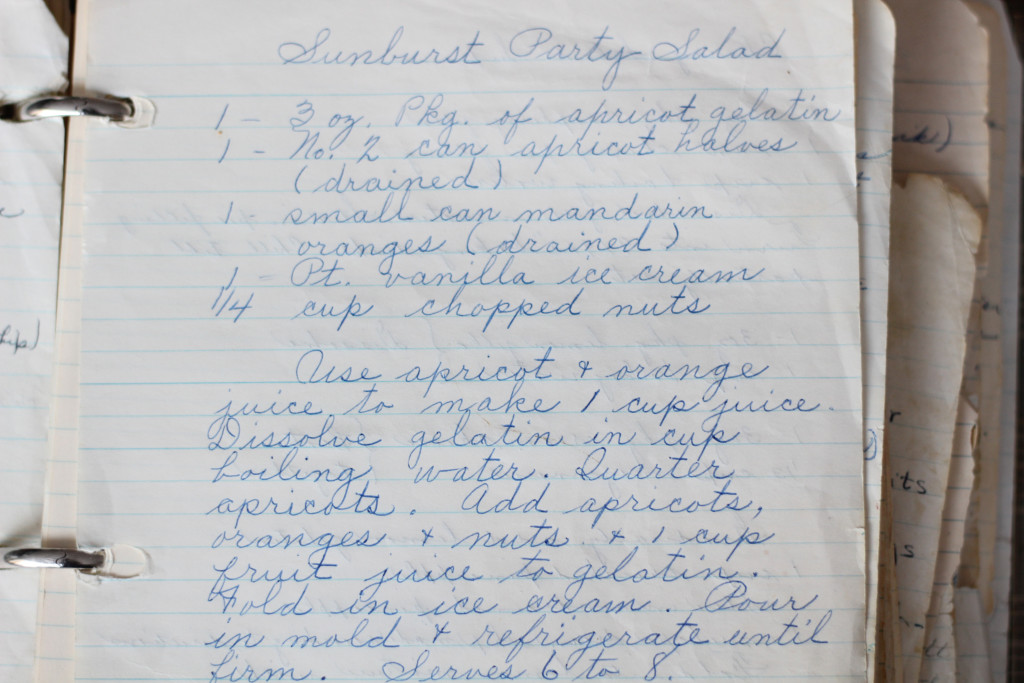 Sunburst Party Salad
1 - 3 oz. Pkg. of apricot gelatin
1 - No. 2 can apricot halves
(drained)
1 - small can mandarin
oranges (drained)
1 - Pt. vanilla ice cream
1/4 cup chopped nuts
Use apricot & orange
juice to make 1 cup juice.
Dissolve gelatin in cup
boiling water. Quarter
apricots. Add apricots,
oranges & nuts & 1 cup
fruit juice to gelatin.
Fold in ice cream. Pour
in mold & refrigerate until
firm. Serves 6 to 8.